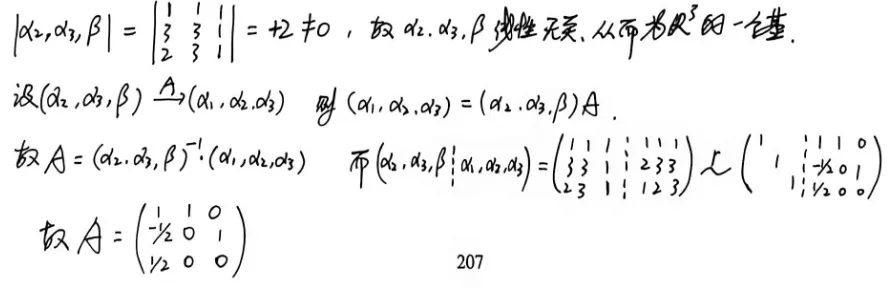 |α₂,α₃,β| = |1 1 1; 3 3 1; 2 3 1| = +2 ≠ 0 , 故 α₂.α₃.β 线性无关.从而为ℝ³的一个基.
设(α₂,α₃,β) —A→ (α₁,α₂,α₃) 则 (α₁,α₂,α₃) = (α₂.α₃.β)A .
故 A = (α₂.α₃,β)⁻¹·(α₁,α₂,α₃) 而 (α₂,α₃,β ┆ α₁,α₂,α₃) = (1 1 1 ┆ 1 1 1; 3 3 1 ┆ 2 3 3; 2 3 1 ┆ 1 2 3) ~ (1 ┆ 1 1 0; 1 ┆ -1/2 0 1; 1 ┆ 1/2 0 0)
故 A = (1 1 0; -1/2 0 1; 1/2 0 0)
207